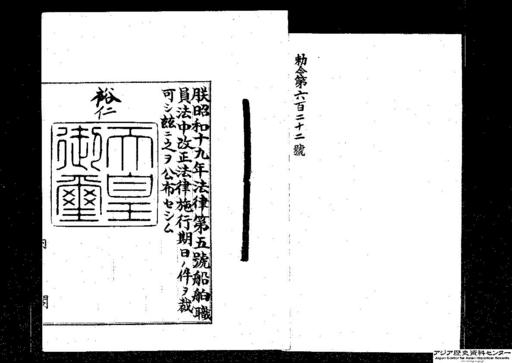 勅令第六百二十二號
朕昭和十九年法律第五號船舶職
員法中改正法律施行期日ノ件ヲ裁
可シ茲ニ之ヲ公布セシム
裕仁
天皇
御璽
内
閣
アジア歴史資料センター
Japan Center for Asian Historical Records